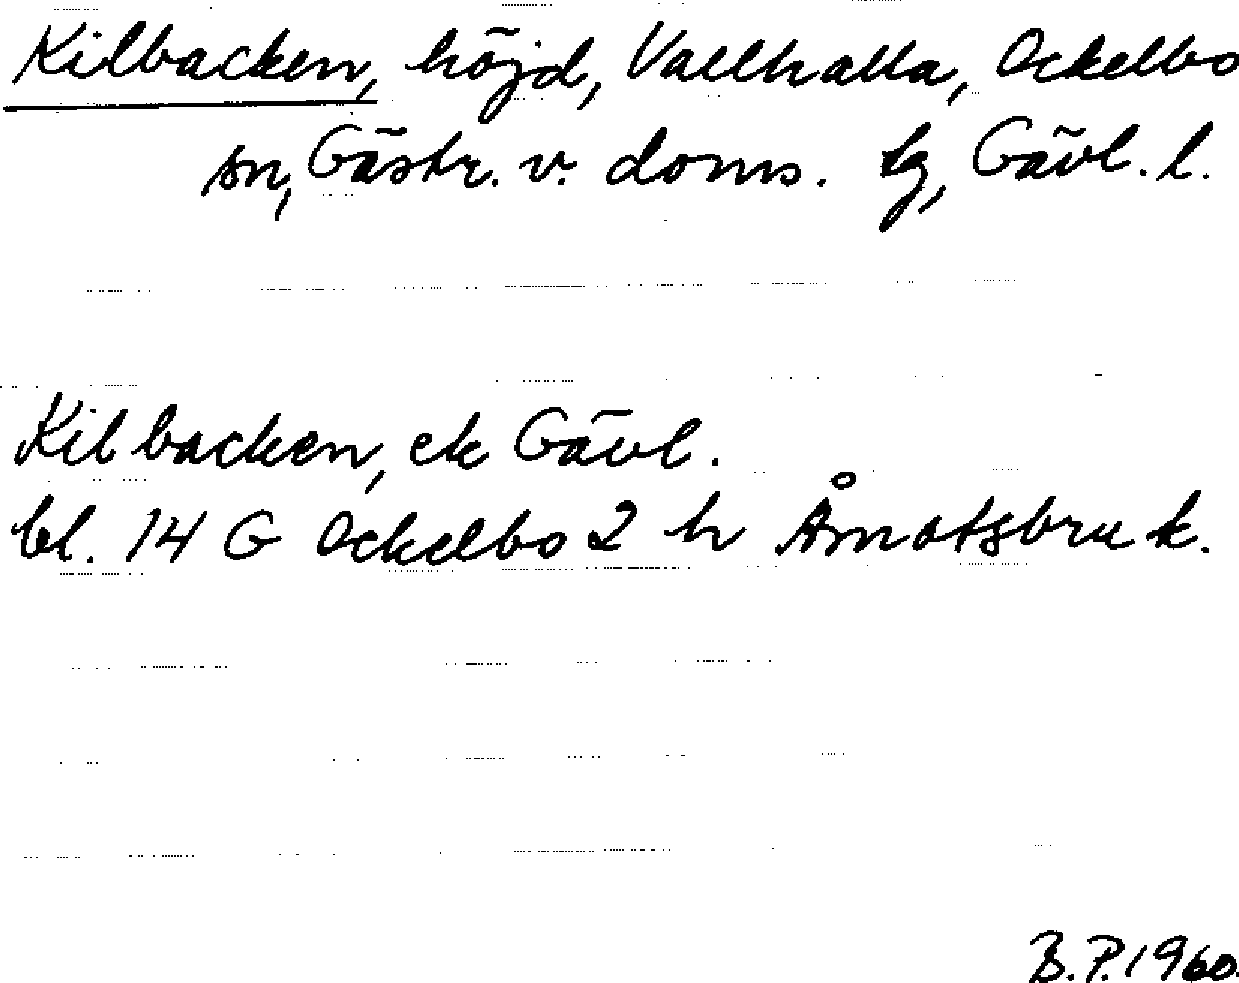 Kilbacken, höjd, Vallhalla, Ockelbo
sn, Gästr. v. doms. lg, Gävl. l.
Kilbacken, ek Gävl.
bl. 14 G Ockelbo 2 h Åmotsbruk.
B. P. 1960.